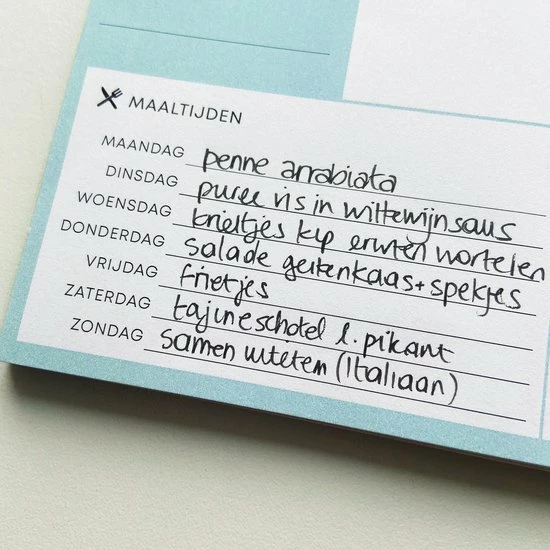 MAALTIJDEN
MAANDAG penne arrabiata
DINSDAG puree vis in wittewijnsaus
WOENSDAG krieltjes kip erwten wortelen
DONDERDAG salade geitenkaas + spekjes
VRIJDAG frietjes
ZATERDAG tajineschotel l. pikant
ZONDAG samen uiteten (Italiaan)